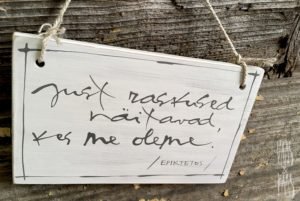 just raskused
näitavad,
kes me oleme.
/EPIKTETOS/